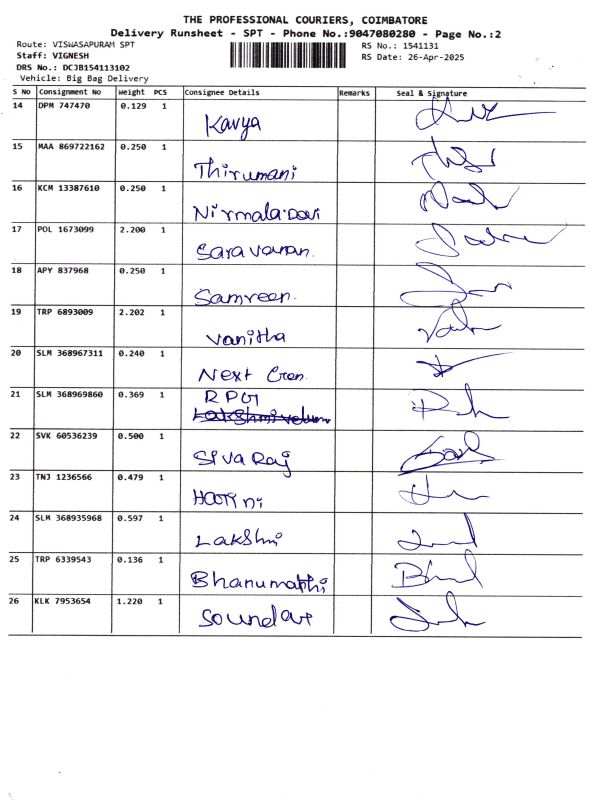 THE PROFESSIONAL COURIERS, COIMBATORE
Delivery Runsheet - SPT - Phone No.:9047080280 - Page No.:2
Route: VISWASAPURAM SPT RS No.: 1541131
Staff: VIGNESH RS Date: 26-Apr-2025
DRS No.: DCJB154113102
Vehicle: Big Bag Delivery
S No Consignment No Weight PCS Consignee Details Remarks Seal & Signature
14 DPM 747470 0.129 1
Kavya
15 MAA 869722162 0.250 1
Thirumani
16 KCM 13387610 0.250 1
Nirmala Devi
17 POL 1673099 2.200 1
Saravanan.
18 APY 837968 0.250 1
Samreen.
19 TRP 6893009 2.202 1
Vanitha
20 SLM 368967311 0.240 1
Next Gen.
21 SLM 368969860 0.369 1 RPG
22 SVK 60536239 0.500 1
SIVA Raj
23 TNJ 1236566 0.479 1
Harini
24 SLM 368935968 0.597 1
Lakshmi
25 TRP 6339543 0.136 1
Bhanumathi
26 KLK 7953654 1.220 1
Soundar